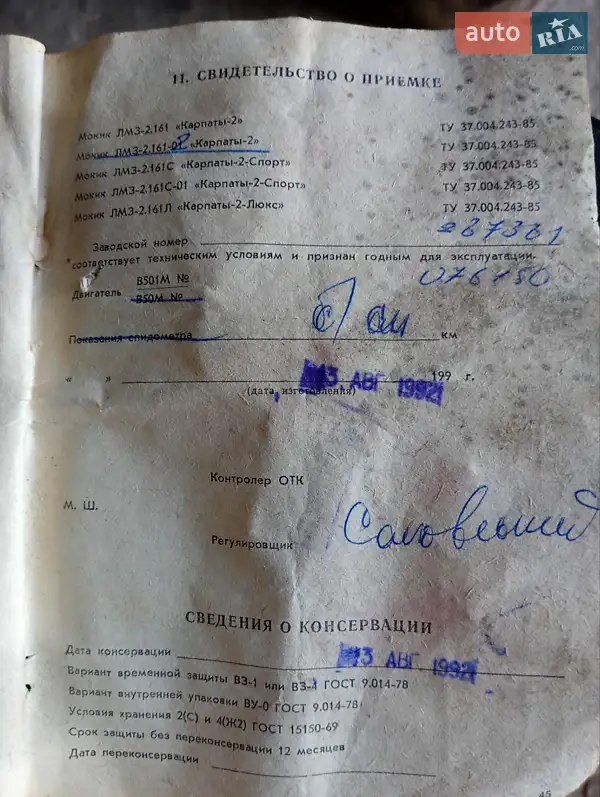 auto RIA .com
11. СВИДЕТЕЛЬСТВО О ПРИЕМКЕ
Мокик ЛМЗ-2.161 «Карпаты-2» ТУ 37.004.243-85
Мокик ЛМЗ-2.161-02 «Карпаты-2» ТУ 37.004.243-85
Мокик ЛМЗ-2.161С «Карпаты-2-Спорт» ТУ 37.004.243-85
Мокик ЛМЗ-2.161С-01 «Карпаты-2-Спорт» ТУ 37.004.243-85
Мокик ЛМЗ-2.161Л «Карпаты-2-Люкс» ТУ 37.004.243-85
Заводской номер 287381
соответствует техническим условиям и признан годным для эксплуатации.
Двигатель В501М № 076150
В50М №
Показания спидометра км
« » 199 г.
13 АВГ 1992
(дата изготовления)
Контролер ОТК
М. Ш.
Регулировщик
СВЕДЕНИЯ О КОНСЕРВАЦИИ
Дата консервации 13 АВГ 1992
Вариант временной защиты ВЗ-1 или ВЗ-4 ГОСТ 9.014-78
Вариант внутренней упаковки ВУ-0 ГОСТ 9.014-78
Условия хранения 2(С) и 4(Ж2) ГОСТ 15150-69
Срок защиты без переконсервации 12 месяцев
Дата переконсервации
45